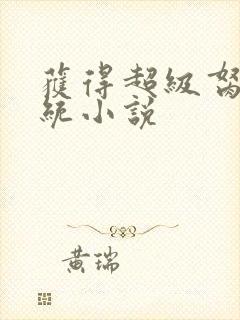 獲得超級
統小說
黃瑞